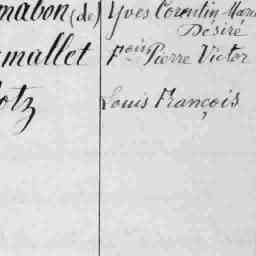 mabon (de) Yves Corentin Marie
Désiré
mallet Fçois Pierre Victor
otz Louis François